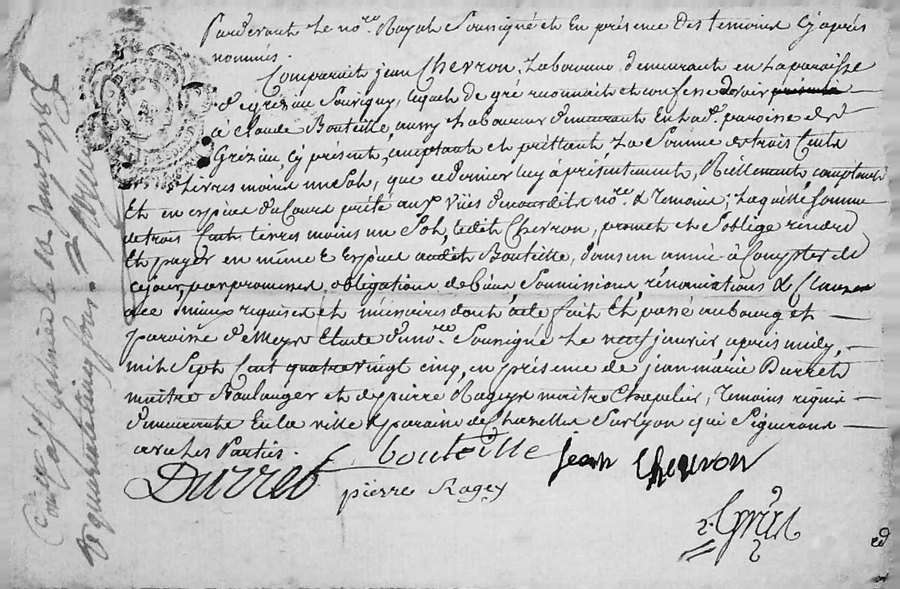 Pardevant Le nore. Royal Soussigné et En présence Des temoins Cy après
nommés.
Comparait jean Chevron, Laboureur, demeurant en La paroisse
de grézieu Souvigny, lequel de gré reconnait et confesse devoir
à Claude Bouteille, aussy Laboureur demeurant En Lad. paroisse de
Grézieu Cy présent, acceptant et prettant La Somme de trois Cents
Livres moins un Sol, que ce dernier luy a présentement, Réellement comptant
Et en espèces du Cours prêté aux Vües de nousdit nore. & Temoins; Laquelle Somme
de trois Cents Livres moins un Sol, ledit Chevron, promet et S'oblige rendre
Et payer en même Espèce audit Bouteille, dans un année à Compter de
ce jour, par promesses, obligations de biens Soumissions, rénonciations & Clauses
requises et nécéssaires dont acte fait Et passé au bourg et
paroisse de Meys Etude dunore. Soussigné Le neuf janvier après midy,
mil Sept Cent quatre vingt Cinq, en présence de jean marie Durret
maitre Boulanger et de pierre Ragey maitre Chapelier, Temoins réquis
demeurants En la ville & paroisse de Chazelles Sur Lyon qui Signerons
avec Les Parties.
bouteille jean Chevron
Durret
pierre Ragey